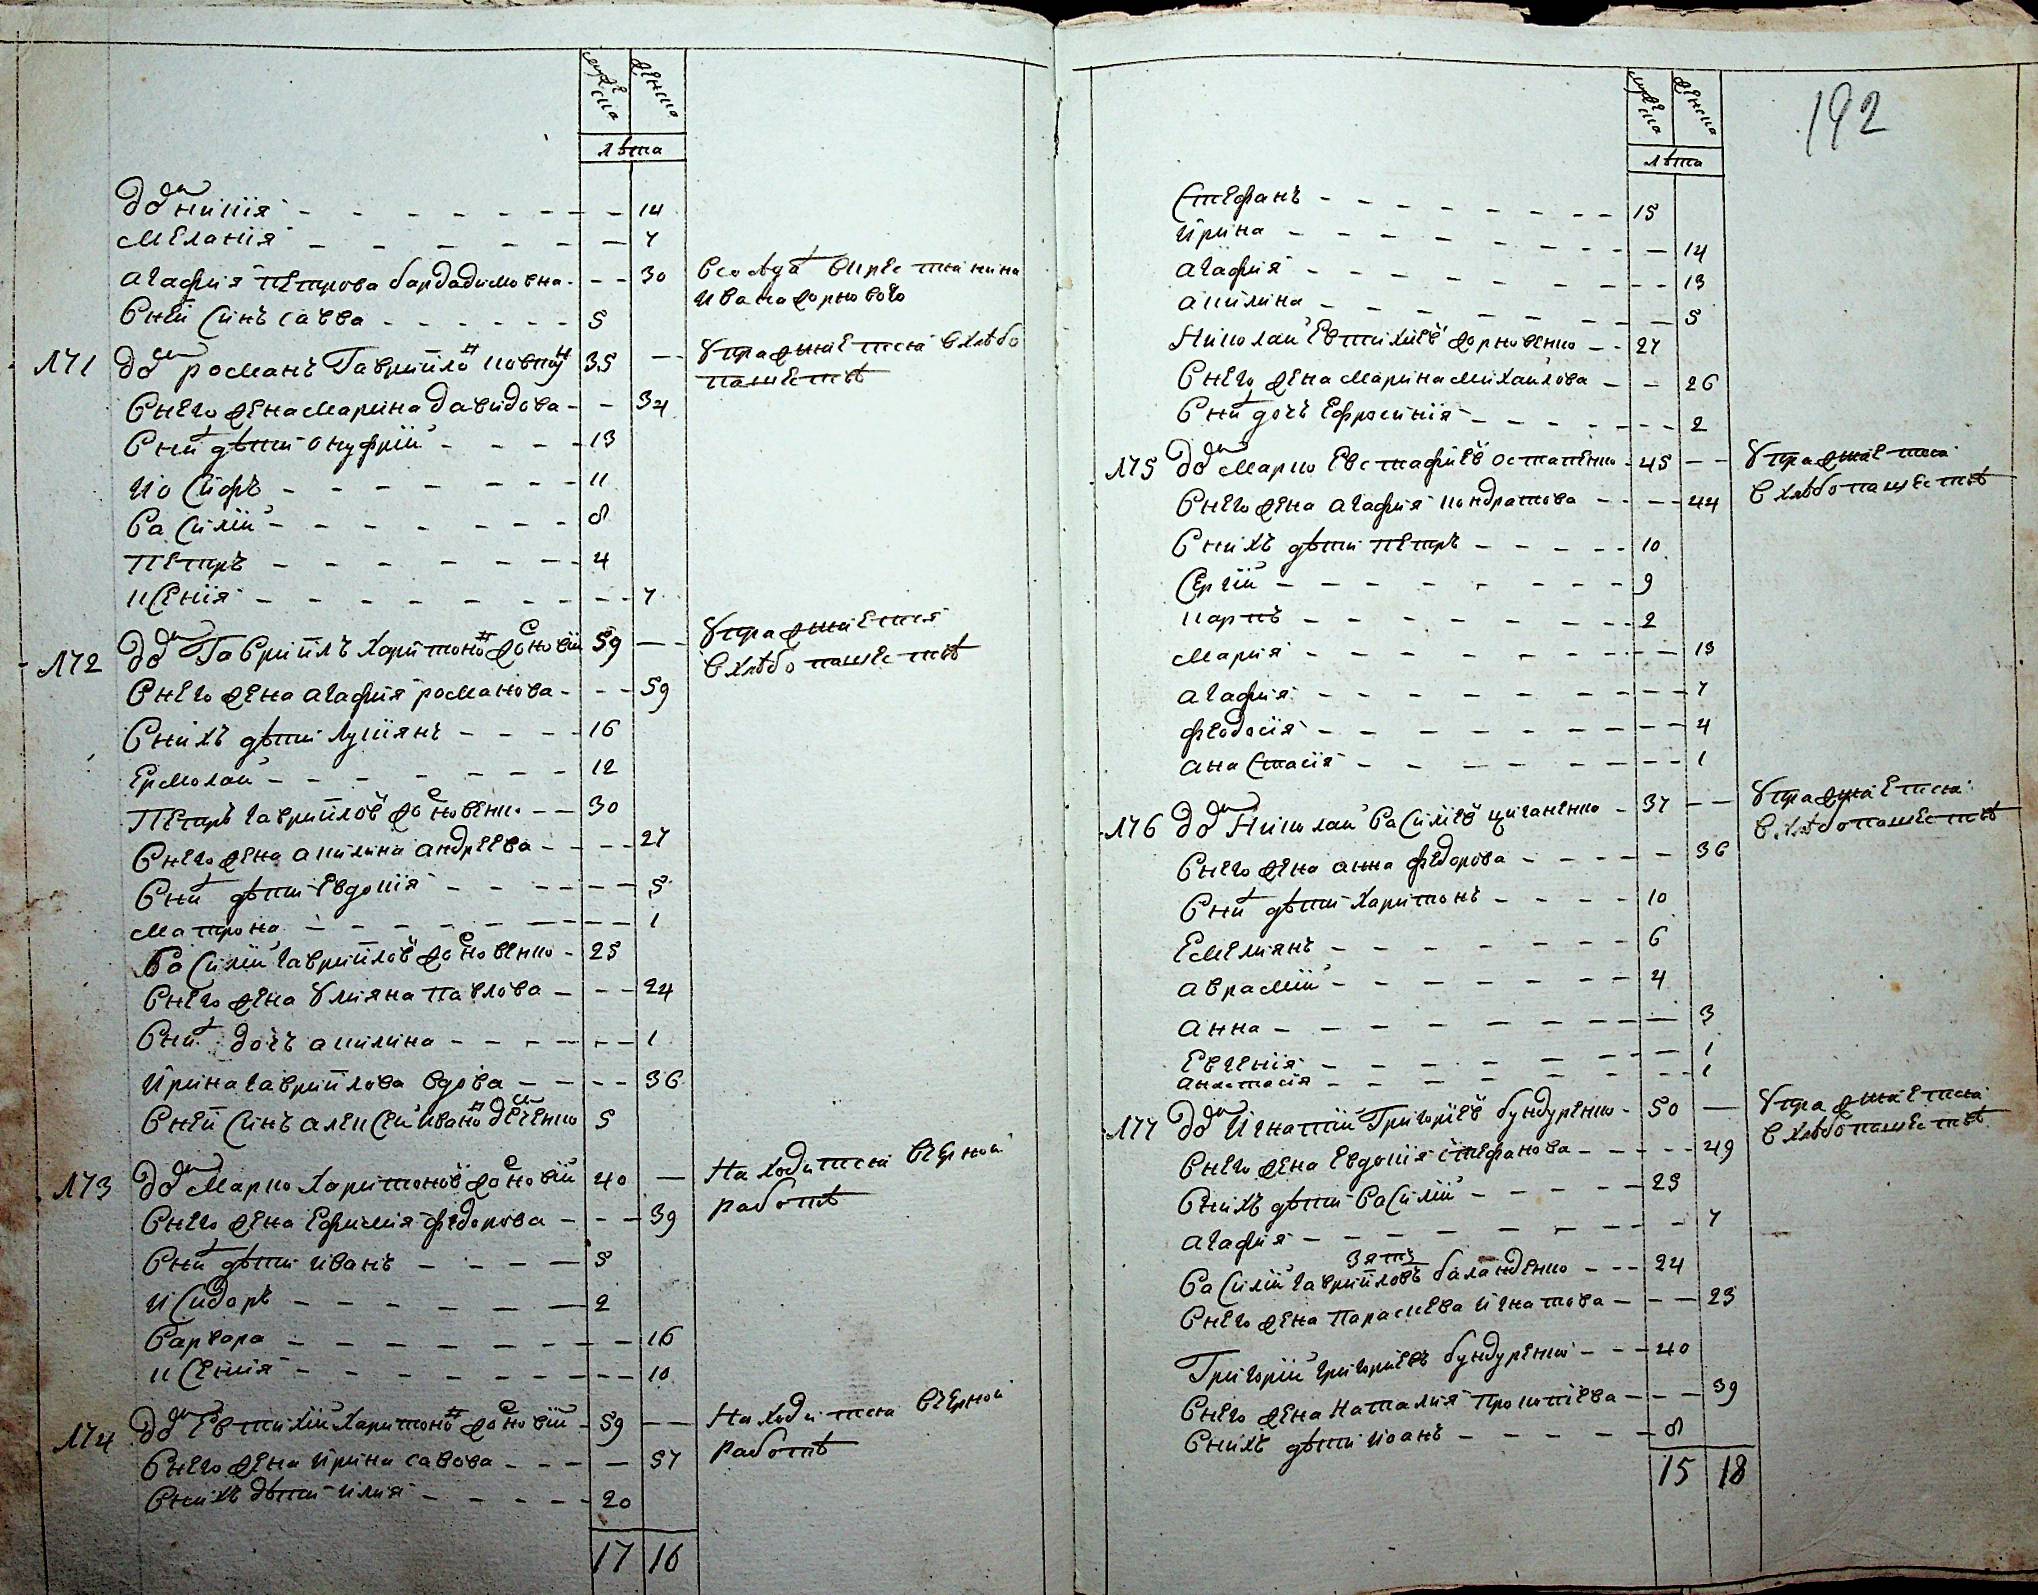 мужеска женска
лѣта
Домникія 14
Меланія 7
Агафія Петрова бардадимовна 30
В ней синъ Савва 5
В солдат крестянина
Ивана жорнового
171 Дво романъ Гавриило 35
Упражняется в хлѣбо
пашествѣ
В него жена Марина Давидова 34
В них дѣти Онуфрій 13
Иосифъ 11
Василій 8
Петръ 4
Ксенія 7
172 Дво Гавриилъ Харитонов жорновій 59
Упражняется
в хлѣбопашествѣ
В него жена Агафія романова 59
В нихъ дѣти Лукіянъ 16
Ермолай 12
Петръ Гавриилов жорновенко 30
В него жена Акилина Андреева 27
В них дѣти Евдокія 5
Матрона 1
Василій Гавриилов жорновенко 25
В него жена Улияна Павлова 24
В них дочъ Акилина 1
Ирина Гавриилова вдова 36
В ней синъ Алексей Иванов 5
173 Дво Марко Харитонов жорновій 40
Находится в черной
работѣ
В него жена Ефимия Федорова 39
В них дѣти Иванъ 5
Исидоръ 2
Варвара 16
Ксенія 10
174 Дво Евтихій Харитонов жорновій 59
Находится в черной
работѣ
В него жена Ирина Савова 57
В нихъ дѣти Илия 20
17 16
192
мужеска женска
лѣта
Стефанъ 15
Ирина 14
Агафія 13
Акилина 5
Николай Евтихиев жорновенко 27
В него жена Марина Михайлова 26
В них дочъ Ефросинія 2
175 Дво Марко Евстафиев остапенко 45
Упражняется
в хлѣбопашествѣ
В него жена Агафія Кондратова 44
В нихъ дѣти Петръ 10
Сергій 9
Карпъ 2
Мария 13
Агафия 7
Феодосія 4
Анастасія 1
176 Дво Николай Василиев циганенко 37
Упражняется
в хлѣбопашествѣ
В него жена Анна Федорова 36
В них дѣти Харитонъ 10
Емелиянъ 6
Аврамій 4
Анна 3
Евгенія 1
Анастасія 1
177 Дво Игнатій Григориев бундуренко 50
Упражняется
в хлѣбопашествѣ
В него жена Евдокія Стефанова 49
В нихъ дѣти Василій 23
Агафія 7
Зять
Василій Гавриилов баланденко 24
В него жена Параскева Игнатова 23
Григорій Григориевъ бундуренко 40
В него жена Наталия Прокопіева 39
В нихъ дѣти Иоанъ 8
15 18